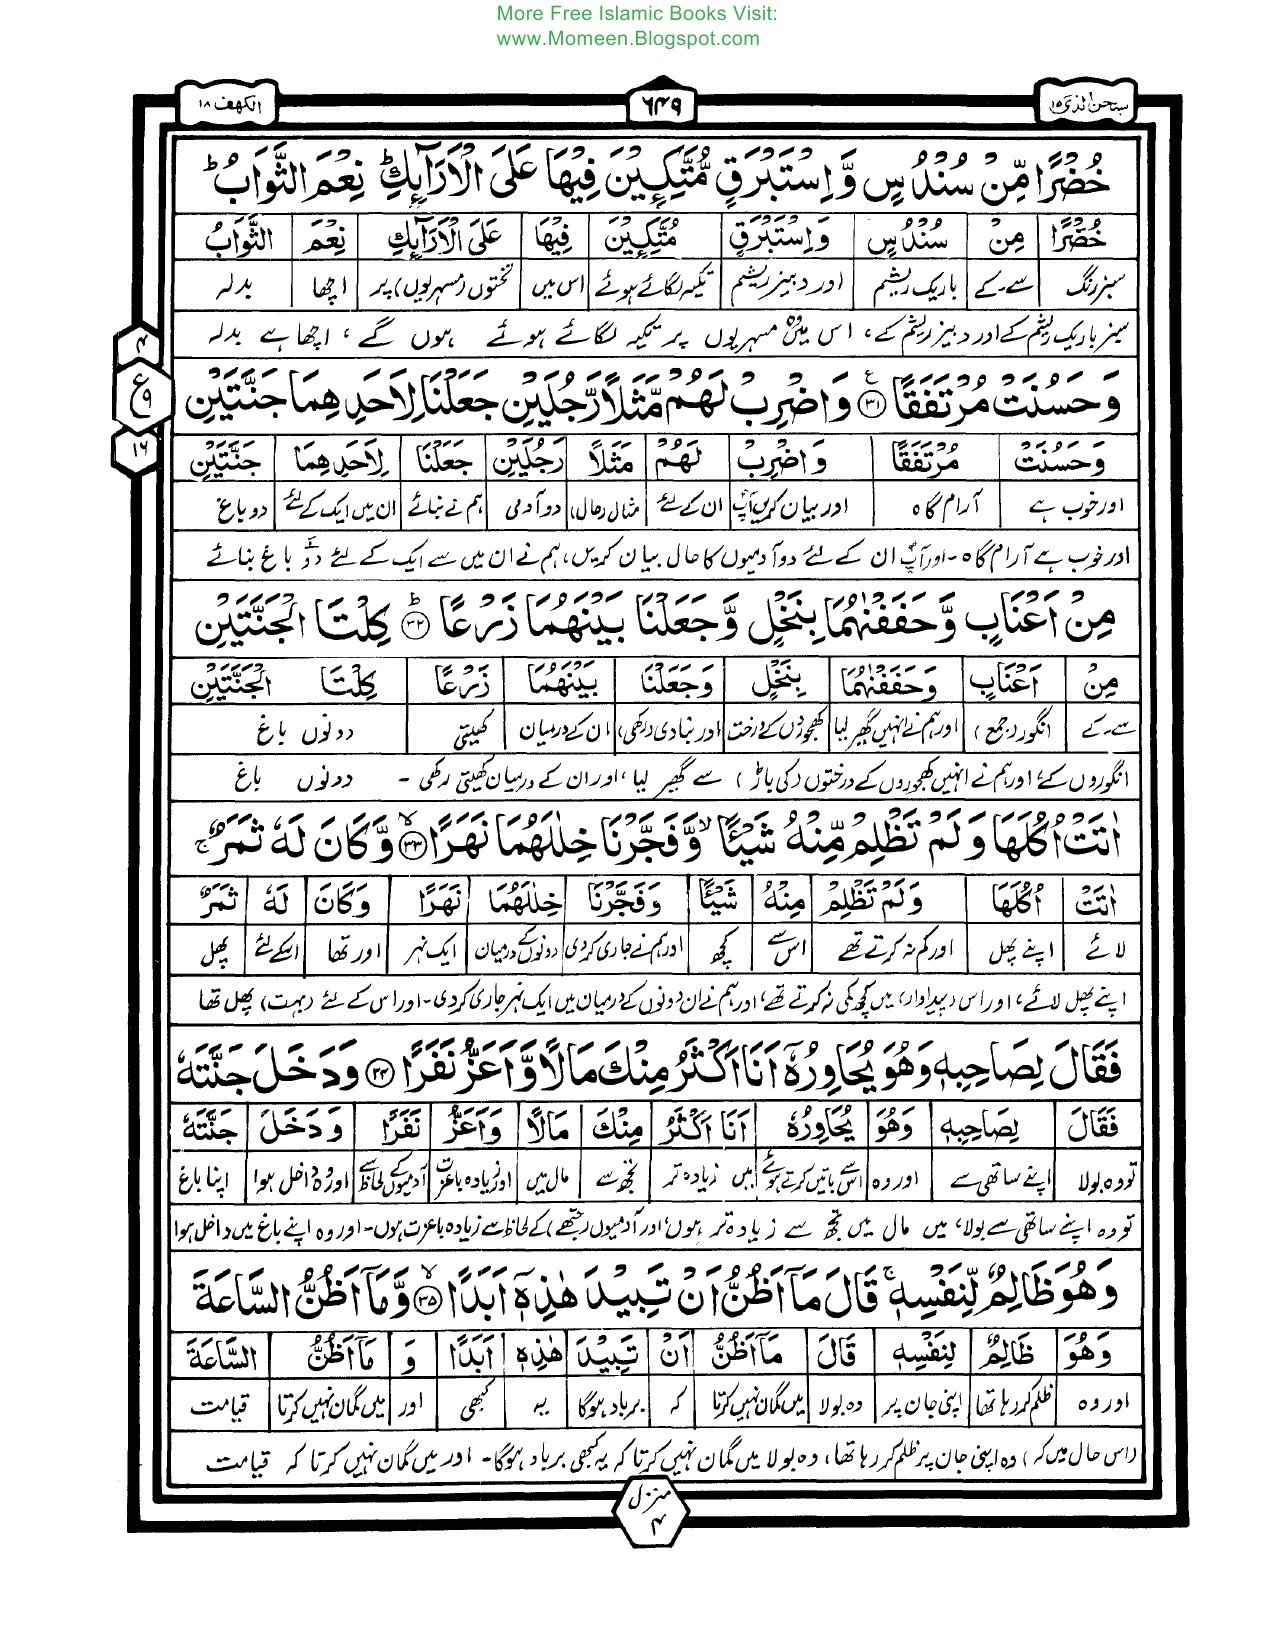 More Free Islamic Books Visit:
www.Momeen.Blogspot.com
سبحن الذی ۱۵
٦٤٩
الکھف ۱۸
خُضْرًا مِّنْ سُنْدُسٍ وَّاِسْتَبْرَقٍ مُّتَّكِـِٕيْنَ فِيْهَا عَلَى الْاَرَآىِٕكِ ؕ نِعْمَ الثَّوَابُ ؕ
خُضْرًا مِنْ سُنْدُسٍ وَاِسْتَبْرَقٍ مُتَّكِـِٕيْنَ فِيْهَا عَلَى الْاَرَآىِٕكِ نِعْمَ الثَّوَابُ
سبز رنگ سے۔کے باریک ریشم اور دبیز ریشم تکیہ لگائے ہوئے اس میں تختوں (مسہریوں) پر اچھا بدلہ
سبز باریک ریشم کے اور دبیز ریشم کے، اس میں وہ مسہریوں پر تکیہ لگائے ہوئے ہوں گے، اچھا ہے بدلہ
۴
ع
۹
۱۶
وَحَسُنَتْ مُرْتَفَقًا ۟ع ۳۱ وَاضْرِبْ لَهُمْ مَّثَلًا رَّجُلَيْنِ جَعَلْنَا لِاَحَدِهِمَا جَنَّتَيْنِ
وَحَسُنَتْ مُرْتَفَقًا وَاضْرِبْ لَهُمْ مَثَلًا رَجُلَيْنِ جَعَلْنَا لِاَحَدِهِمَا جَنَّتَيْنِ
اور خوب ہے آرام گاہ اور بیان کریں آپؐ ان کے لئے مثال (حال) دو آدمی ہم نے بنائے ان میں ایک کے لئے دو باغ
اور خوب ہے آرام گاہ۔ اور آپؐ ان کے لئے دو آدمیوں کا حال بیان کریں، ہم نے ان میں سے ایک کے لئے دو باغ بنائے
مِنْ اَعْنَابٍ وَّحَفَفْنٰهُمَا بِنَخْلٍ وَّجَعَلْنَا بَيْنَهُمَا زَرْعًا ؕ ۳۲ كِلْتَا الْجَنَّتَيْنِ
مِنْ اَعْنَابٍ وَحَفَفْنٰهُمَا بِنَخْلٍ وَجَعَلْنَا بَيْنَهُمَا زَرْعًا كِلْتَا الْجَنَّتَيْنِ
سے۔کے انگور (جمع) اور ہم نے انہیں گھیر لیا کھجوروں کے درخت اور بنادی (رکھی) ان کے درمیان کھیتی دونوں باغ
انگوروں کے، اور ہم نے انہیں کھجوروں کے درختوں (کی باڑ) سے گھیر لیا، اور ان کے درمیان کھیتی رکھی۔ دونوں باغ
اٰتَتْ اُكُلَهَا وَلَمْ تَظْلِمْ مِّنْهُ شَيْـًٔا ۙ وَّفَجَّرْنَا خِلٰلَهُمَا نَهَرًا ۙ ۳۳ وَّكَانَ لَهٗ ثَمَرٌ ۚ
اٰتَتْ اُكُلَهَا وَلَمْ تَظْلِمْ مِنْهُ شَيْـًٔا وَفَجَّرْنَا خِلٰلَهُمَا نَهَرًا وَكَانَ لَهٗ ثَمَرٌ
لائے اپنے پھل اور کم نہ کرتے تھے اس سے کچھ اور ہم نے جاری کر دی دونوں کے درمیان ایک نہر اور تھا اسکے لئے پھل
اپنے پھل لائے، اور اس (پیداوار) میں کچھ کمی نہ کرتے تھے، اور ہم نے ان دونوں کے درمیان میں ایک نہر جاری کر دی۔ اور اس کے لئے (بہت) پھل تھا
فَقَالَ لِصَاحِبِهٖ وَهُوَ يُحَاوِرُهٗٓ اَنَا اَكْثَرُ مِنْكَ مَالًا وَّاَعَزُّ نَفَرًا ۳۴ وَدَخَلَ جَنَّتَهٗ
فَقَالَ لِصَاحِبِهٖ وَهُوَ يُحَاوِرُهٗ اَنَا اَكْثَرُ مِنْكَ مَالًا وَاَعَزُّ نَفَرًا وَدَخَلَ جَنَّتَهٗ
تو وہ بولا اپنے ساتھی سے اور وہ اس سے باتیں کرتے ہوئے میں زیادہ تر تجھ سے مال میں اور زیادہ باعزت آدمیوں کے لحاظ سے اور وہ داخل ہوا اپنا باغ
تو وہ اپنے ساتھی سے بولا، میں مال میں تجھ سے زیادہ تر ہوں، اور آدمیوں (جتھے) کے لحاظ سے زیادہ باعزت ہوں۔ اور وہ اپنے باغ میں داخل ہوا
وَهُوَ ظَالِمٌ لِّنَفْسِهٖ ۚ قَالَ مَآ اَظُنُّ اَنْ تَبِيْدَ هٰذِهٖٓ اَبَدًا ۙ ۳۵ وَّمَآ اَظُنُّ السَّاعَةَ
وَهُوَ ظَالِمٌ لِنَفْسِهٖ قَالَ مَآ اَظُنُّ اَنْ تَبِيْدَ هٰذِهٖ اَبَدًا وَ مَآ اَظُنُّ السَّاعَةَ
اور وہ ظلم کر رہا تھا اپنی جان پر وہ بولا میں گمان نہیں کرتا کہ برباد ہوگا یہ کبھی اور میں گمان نہیں کرتا قیامت
(اس حال میں کہ) وہ اپنی جان پر ظلم کر رہا تھا، وہ بولا میں گمان نہیں کرتا کہ یہ کبھی برباد ہوگا۔ اور میں گمان نہیں کرتا کہ قیامت
منزل
۴